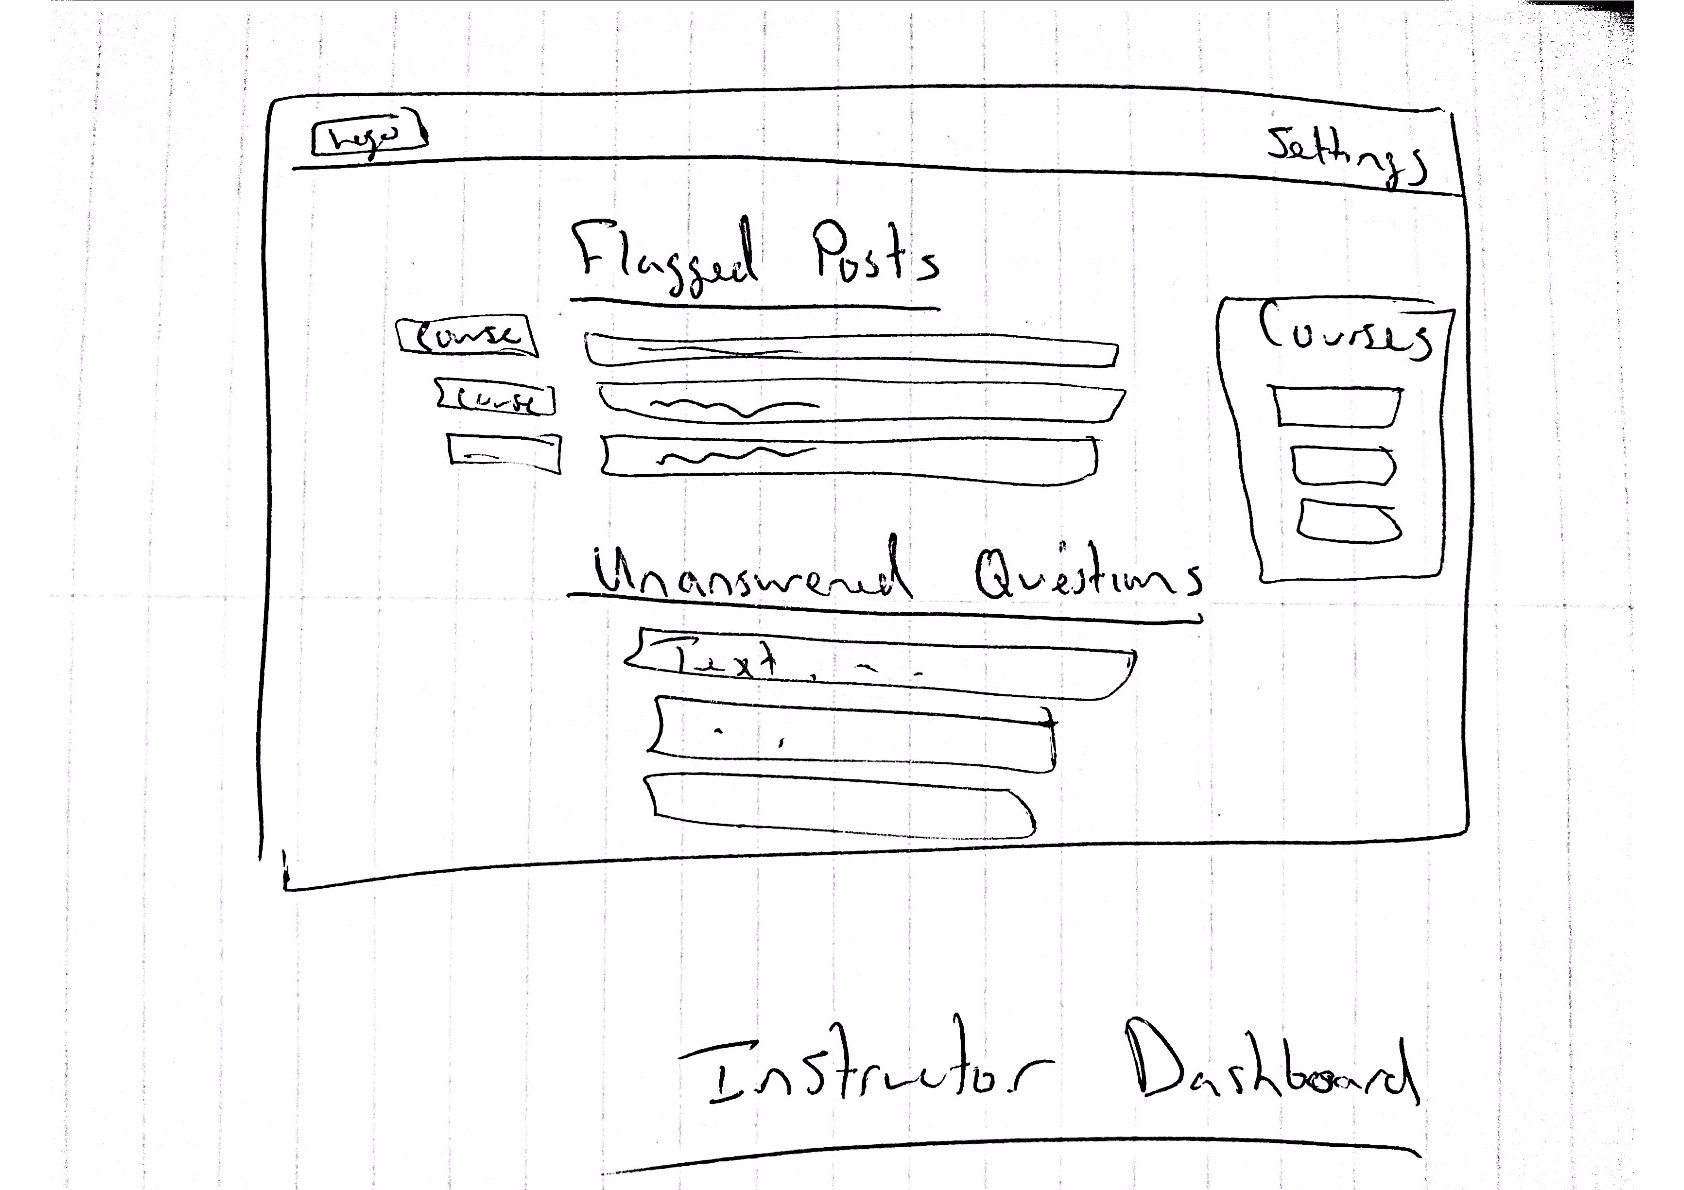 Logo
Settings
Flagged Posts
Course
Course
Courses
Unanswered Questions
Text . - .
Instructor Dashboard